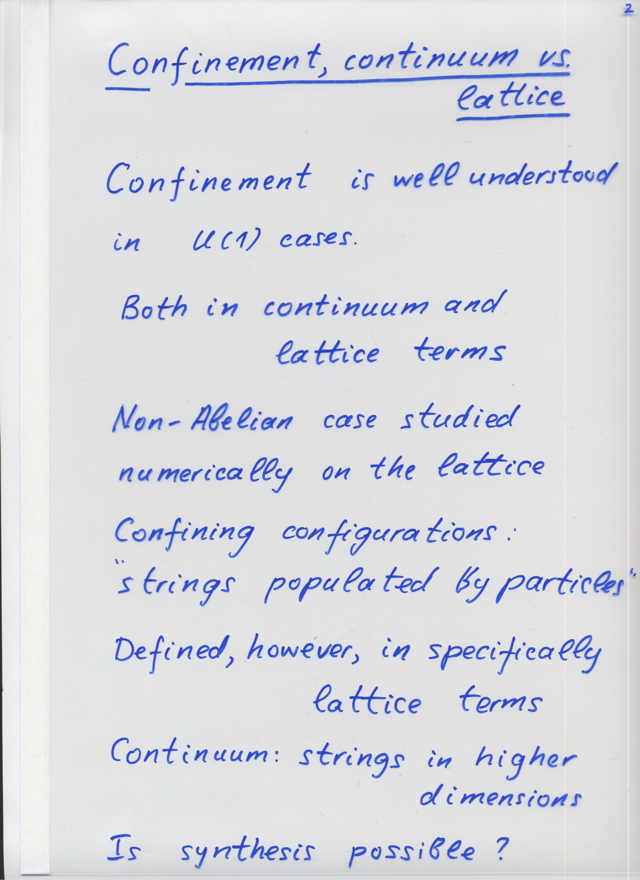 2
Confinement, continuum vs.
lattice
Confinement is well understood
in U(1) cases.
Both in continuum and
lattice terms
Non-Abelian case studied
numerically on the lattice
Confining configurations:
"strings populated by particles"
Defined, however, in specifically
lattice terms
Continuum: strings in higher
dimensions
Is synthesis possible?